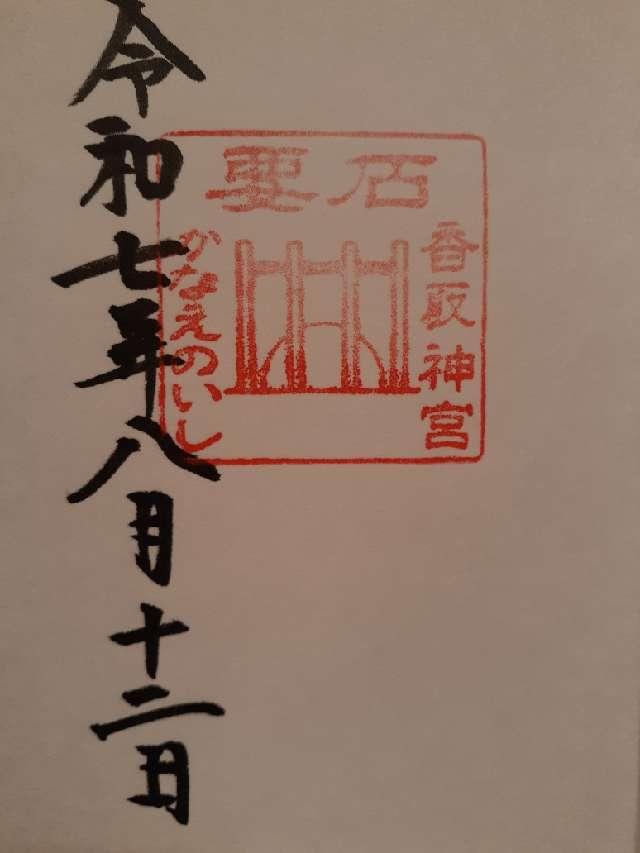 要石
香取神宮
かなえのいし
令和七年八月十二日